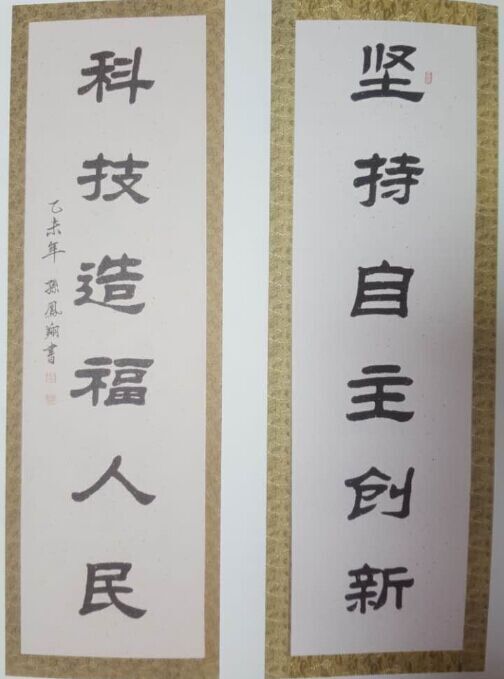 坚持自主创新
科技造福人民
乙未年 孙凤翔书